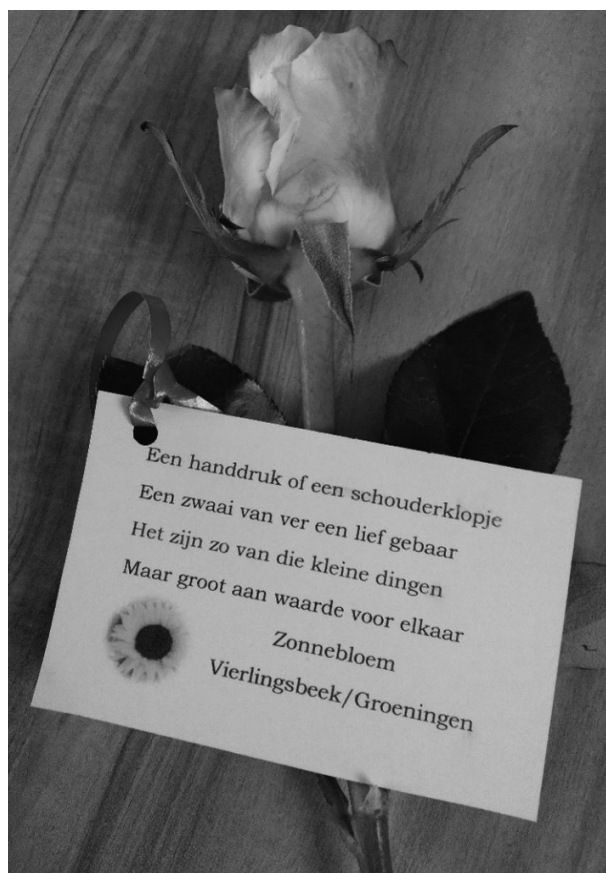 Een handdruk of een schouderklopje
Een zwaai van ver een lief gebaar
Het zijn zo van die kleine dingen
Maar groot aan waarde voor elkaar
Zonnebloem
Vierlingsbeek/Groeningen